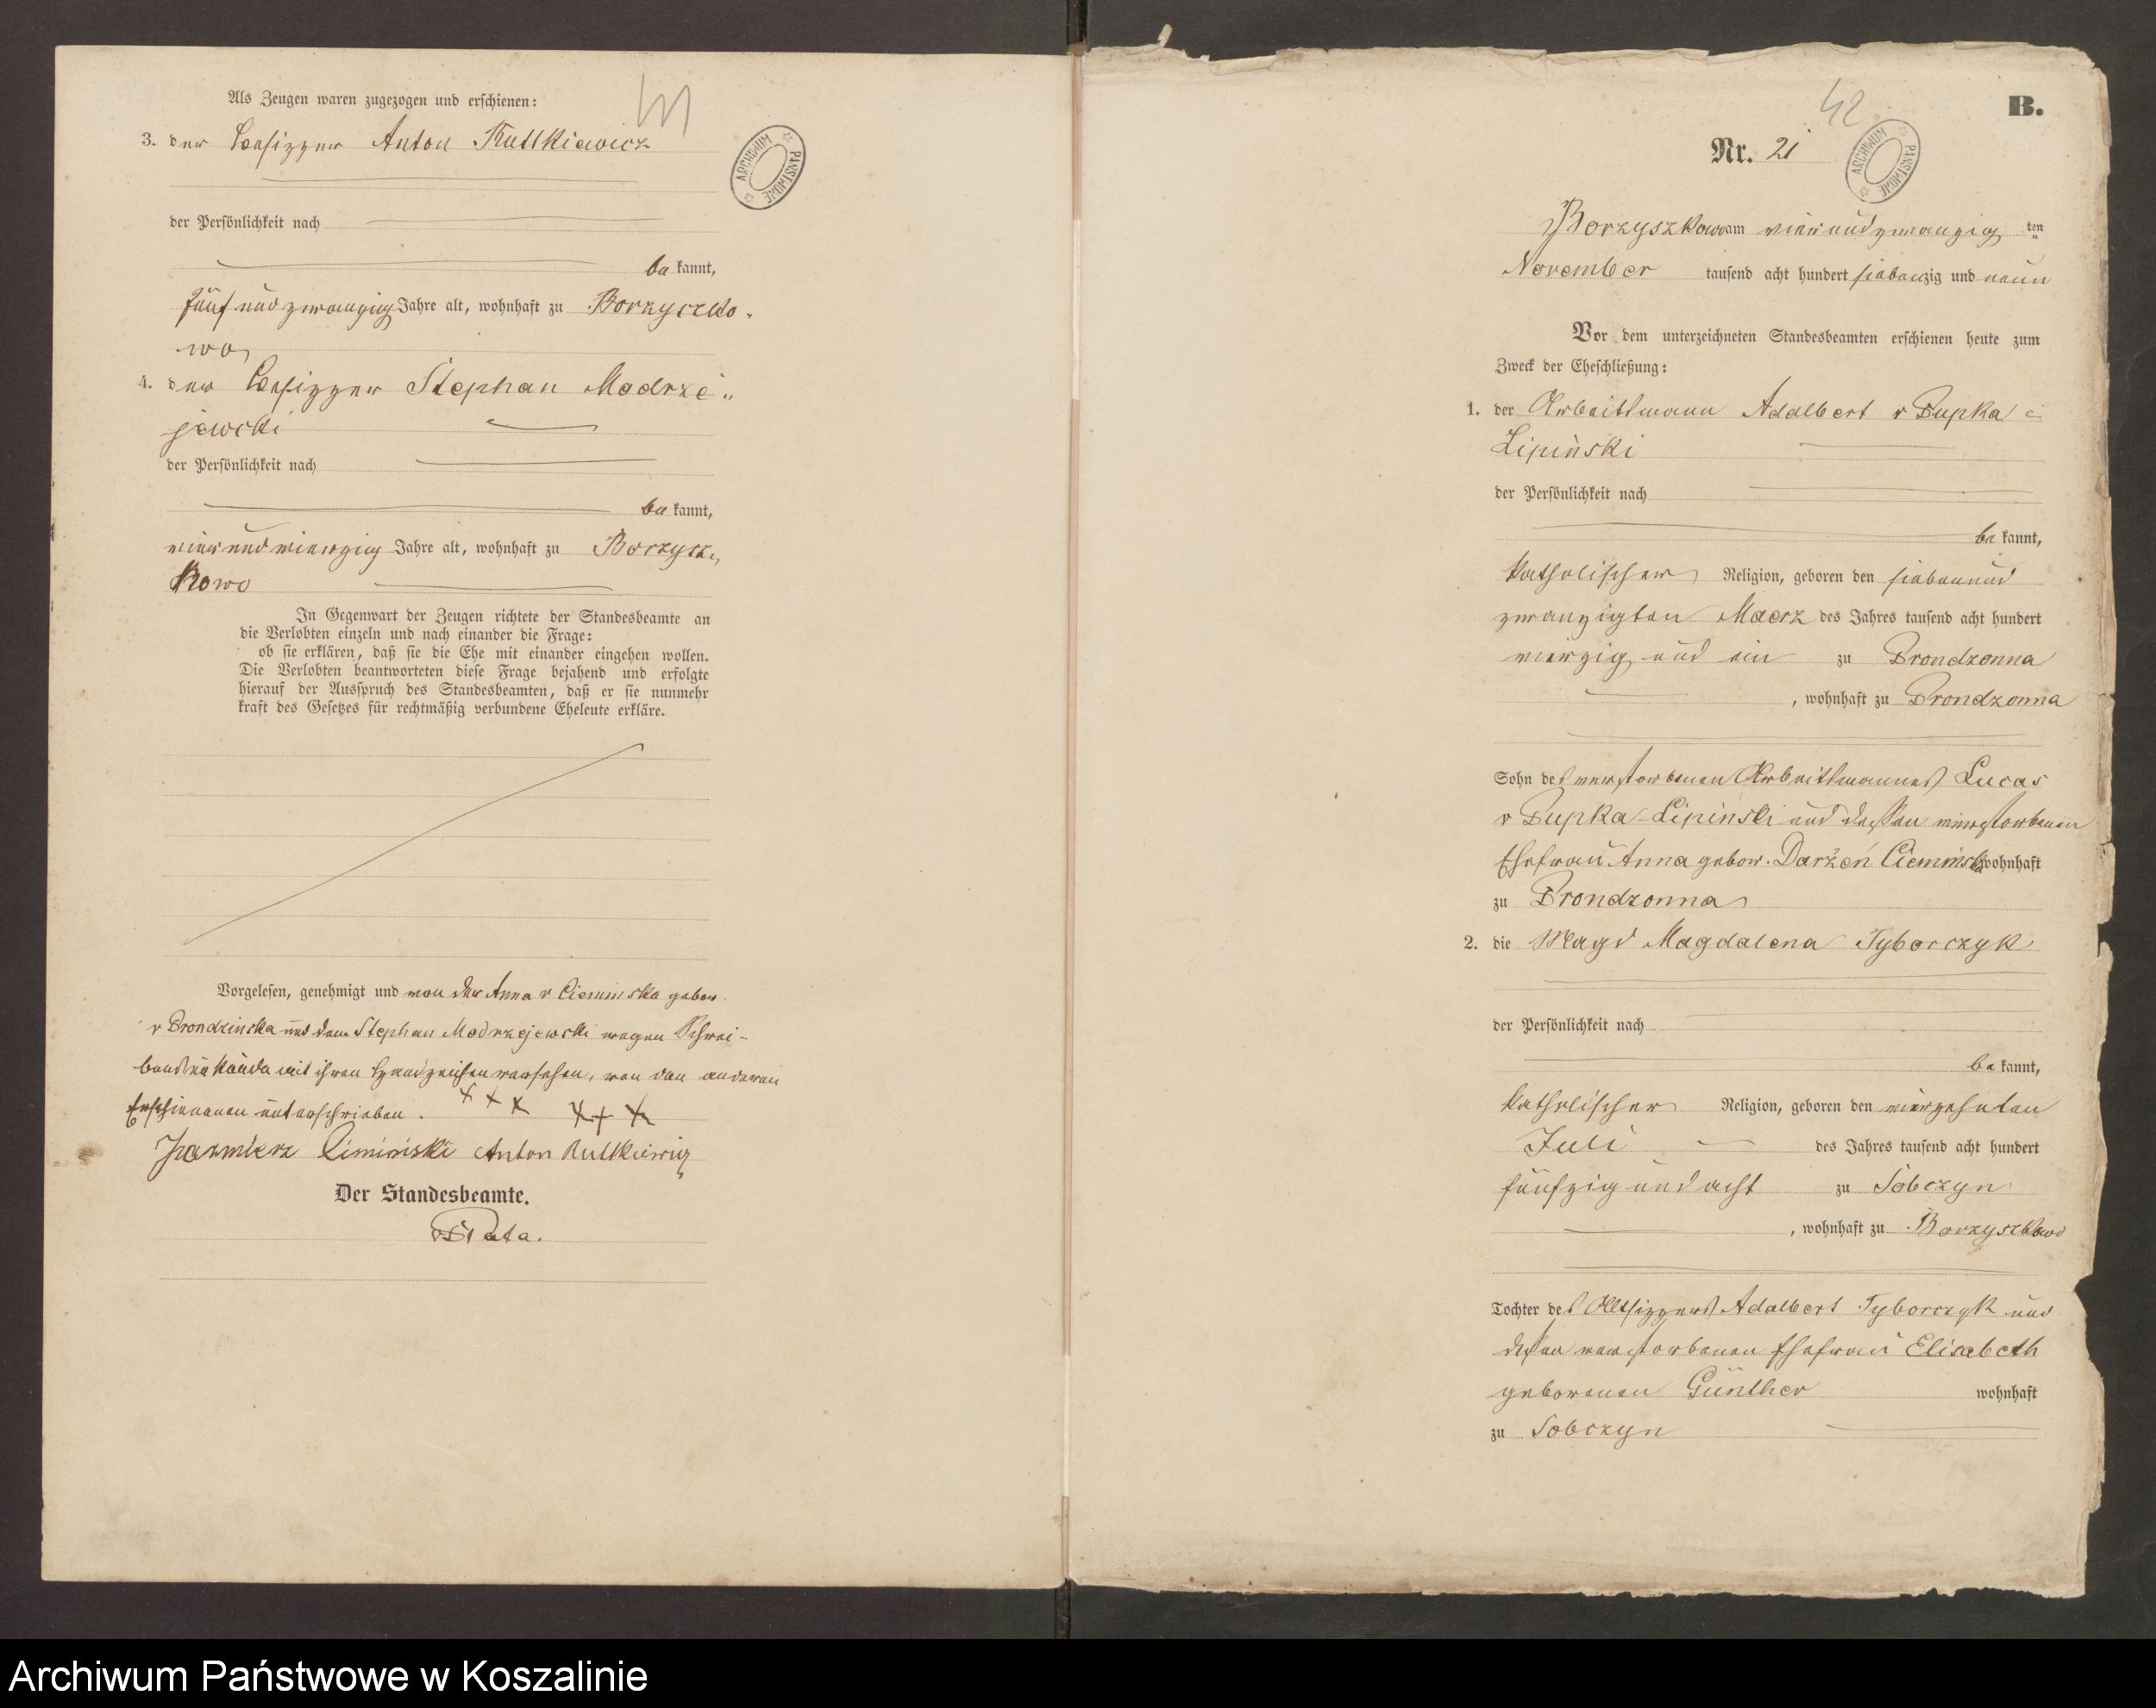 Als Zeugen waren zugezogen und erschienen:
41
3. der Besitzer Anton Rutkiewicz
ARCHIWUM PAŃSTWOWE
der Persönlichkeit nach
be kannt,
fünf und zwanzig Jahre alt, wohnhaft zu Borzyszko-
wo,
4. der Besitzer Stephan Modrze-
jewski
der Persönlichkeit nach
be kannt,
vier und vierzig Jahre alt, wohnhaft zu Borzysz-
kowo
In Gegenwart der Zeugen richtete der Standesbeamte an
die Verlobten einzeln und nach einander die Frage:
ob sie erklären, daß sie die Ehe mit einander eingehen wollen.
Die Verlobten beantworteten diese Frage bejahend und erfolgte
hierauf der Ausspruch des Standesbeamten, daß er sie nunmehr
kraft des Gesetzes für rechtmäßig verbundene Eheleute erkläre.
Vorgelesen, genehmigt und von der Anna v Ciemińska gebor.
v Prondzinska und dem Stephan Modrzejewski wegen Schrei-
bensunkunde mit ihren Handzeichen versehen, von den anderen
Erschienenen unterschrieben. + + + + + +
Kazmierz Cimiński Anton Rutkiewicz
Der Standesbeamte.
B.
42
Nr. 21
ARCHIWUM PAŃSTWOWE
Borzyszkowo am vier und zwanzig ten
November tausend acht hundert siebenzig und neun
Vor dem unterzeichneten Standesbeamten erschienen heute zum
Zweck der Eheschließung:
1. der Arbeitsmann Adalbert v Pupka
Lipiński
der Persönlichkeit nach
be kannt,
katholischer Religion, geboren den sieben und
zwanzigten Maerz des Jahres tausend acht hundert
vierzig und ein zu Prondzonna
, wohnhaft zu Prondzonna
Sohn des verstorbenen Arbeitsmannes Lucas
v Pupka-Lipinski und dessen verstorbenen
Ehefrau Anna gebor. Darżeń Cieminska wohnhaft
zu Prondzonna
2. die Magd Magdalena Tyborczyk
der Persönlichkeit nach
be kannt,
katholischer Religion, geboren den vierzehnten
Juli des Jahres tausend acht hundert
fünfzig und acht zu Sobczyn
, wohnhaft zu Borzyszkowo
Tochter des Altsitzers Adalbert Tyborczyk und
dessen verstorbenen Ehefrau Elisabeth
geborenen Günther wohnhaft
zu Sobczyn
Archiwum Państwowe w Koszalinie